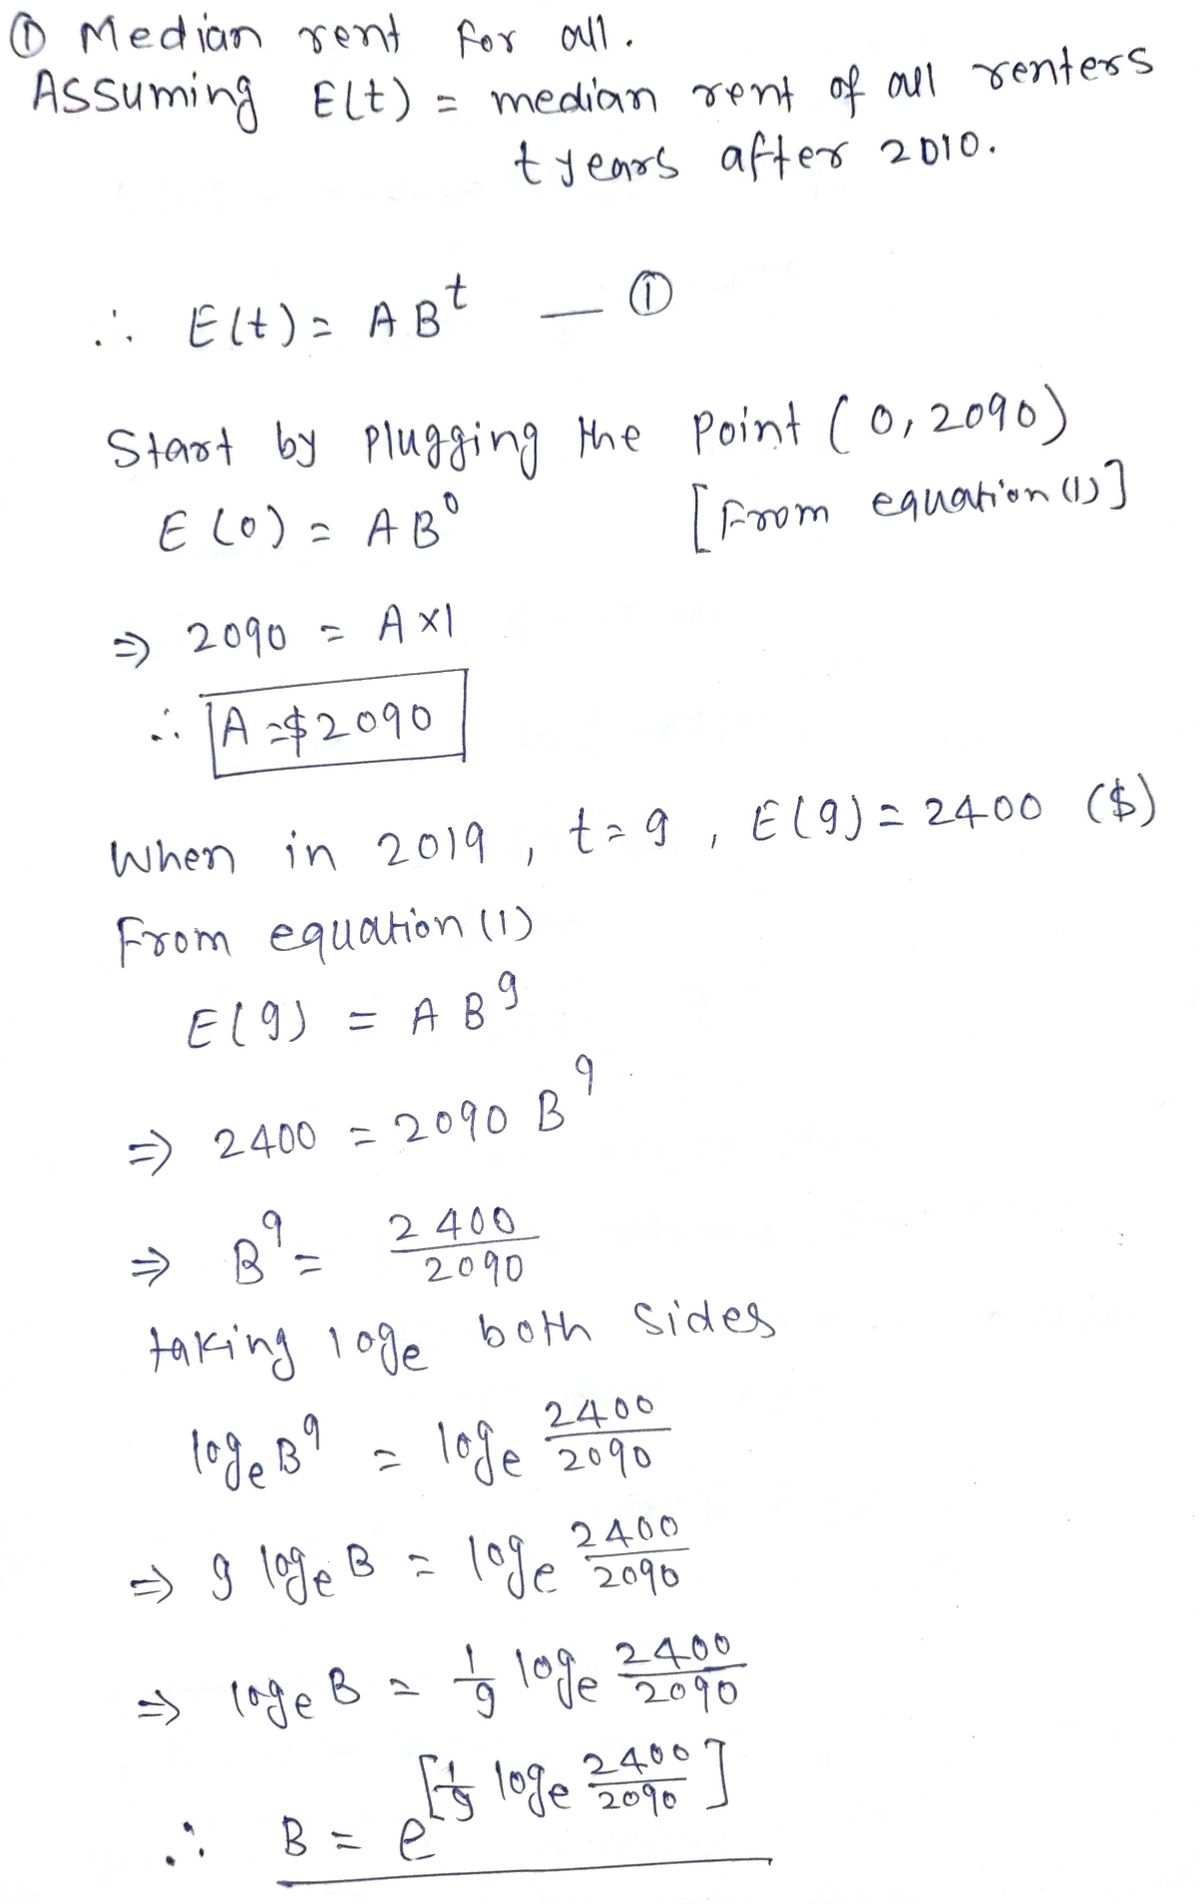 ① Median rent for all.
Assuming E(t) = median rent of all renters
t years after 2010.
∴ E(t) = A B^t — ①
Start by plugging the point (0, 2090)
E(0) = A B^0 [From equation (1)]
⇒ 2090 = A × 1
∴ A = $2090
When in 2019, t = 9, E(9) = 2400 ($)
From equation (1)
E(9) = A B^9
⇒ 2400 = 2090 B^9
⇒ B^9 = 2400/2090
taking log_e both sides
log_e B^9 = log_e 2400/2090
⇒ 9 log_e B = log_e 2400/2090
⇒ log_e B = 1/9 log_e 2400/2090
∴ B = e^[1/9 log_e 2400/2090]